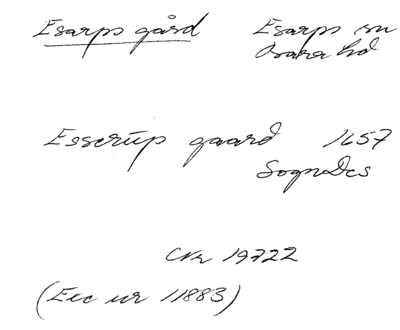 Esarps gård Esarps sn
Bara hd
Esserup gaard 1657
SognDcs
CNr 19722
(Exc ur 11883)